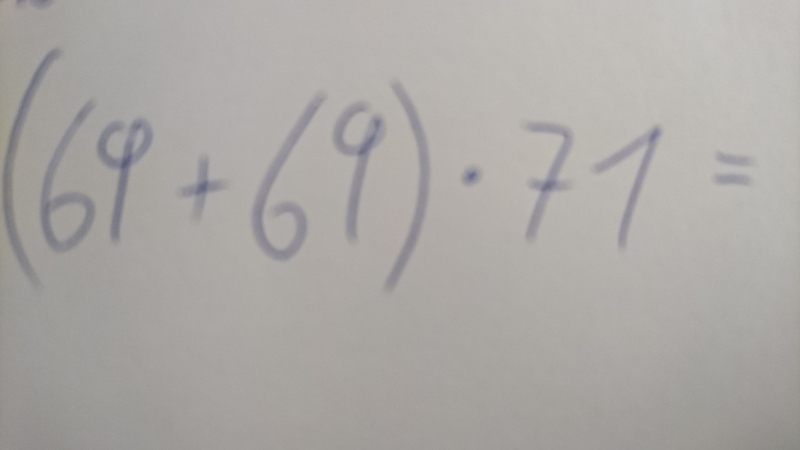 (69 + 69) · 71 =